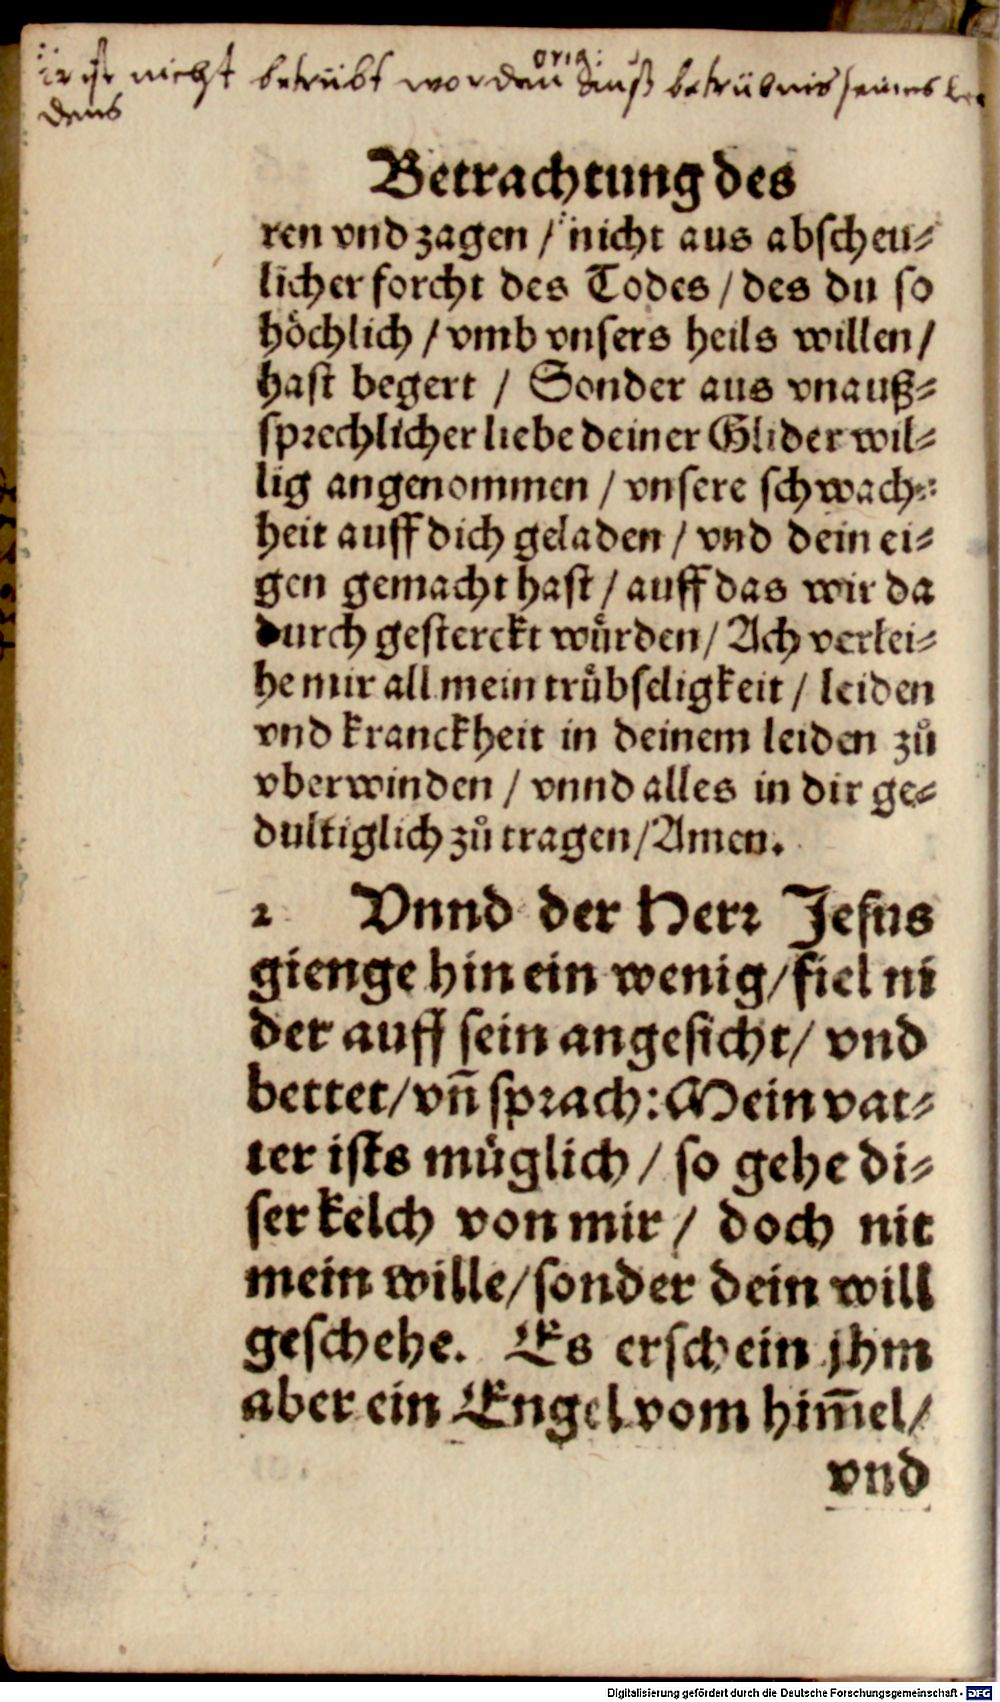 ist nicht betrübt worden auß betrübnis seines
dens
Betrachtung des
ren vnd zagen / nicht aus abscheu⸗
licher forcht des Todes / des du so
hoͤchlich / vmb vnsers heils willen /
hast begert / Sonder aus vnauß⸗
sprechlicher liebe deiner Glider wil⸗
lig angenommen / vnsere schwach⸗
heit auff dich geladen / vnd dein ei⸗
gen gemacht hast / auff das wir da
durch gesterckt wuͤrden / Ach verlei⸗
he mir all mein truͤbseligkeit / leiden
vnd kranckheit in deinem leiden zuͦ
vberwinden / vnnd alles in dir ge⸗
dultiglich zuͦ tragen / Amen.
2 Vnnd der Herr Jesus
gienge hin ein wenig / fiel ni
der auff sein angesicht / vnd
bettet / vn̄ sprach: Mein vat⸗
ter ists muͤglich / so gehe di⸗
ser kelch von mir / doch nit
mein wille / sonder dein will
geschehe. Es erschein jhm
aber ein Engel vom him̄el /
vnd
Digitalisierung gefördert durch die Deutsche Forschungsgemeinschaft - DFG